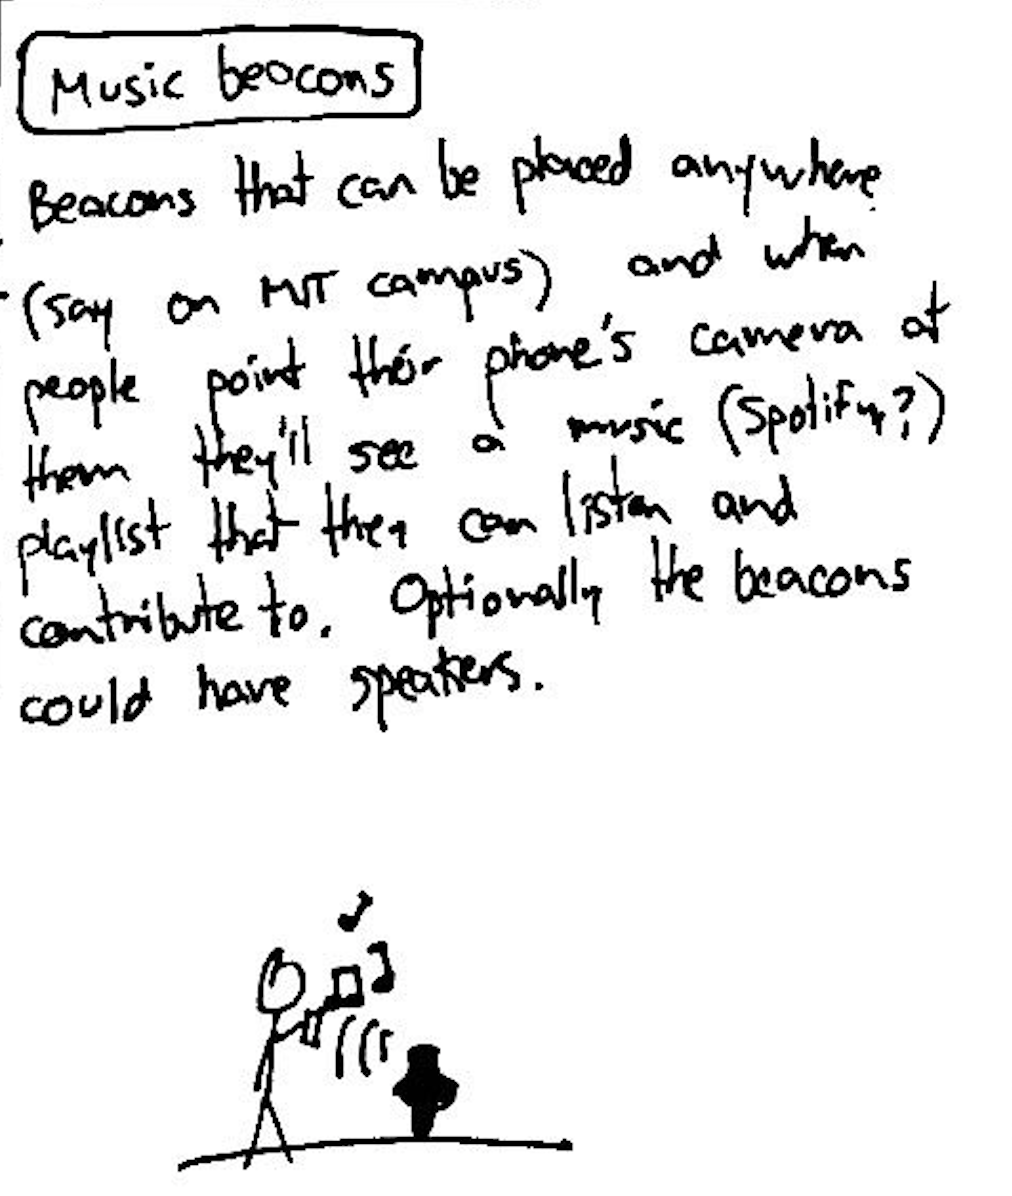 Music beacons
Beacons that can be placed anywhere
(say on MIT campus) and when
people point their phone's camera at
them they'll see a music (Spotify?)
playlist that they can listen and
contribute to. Optionally the beacons
could have speakers.